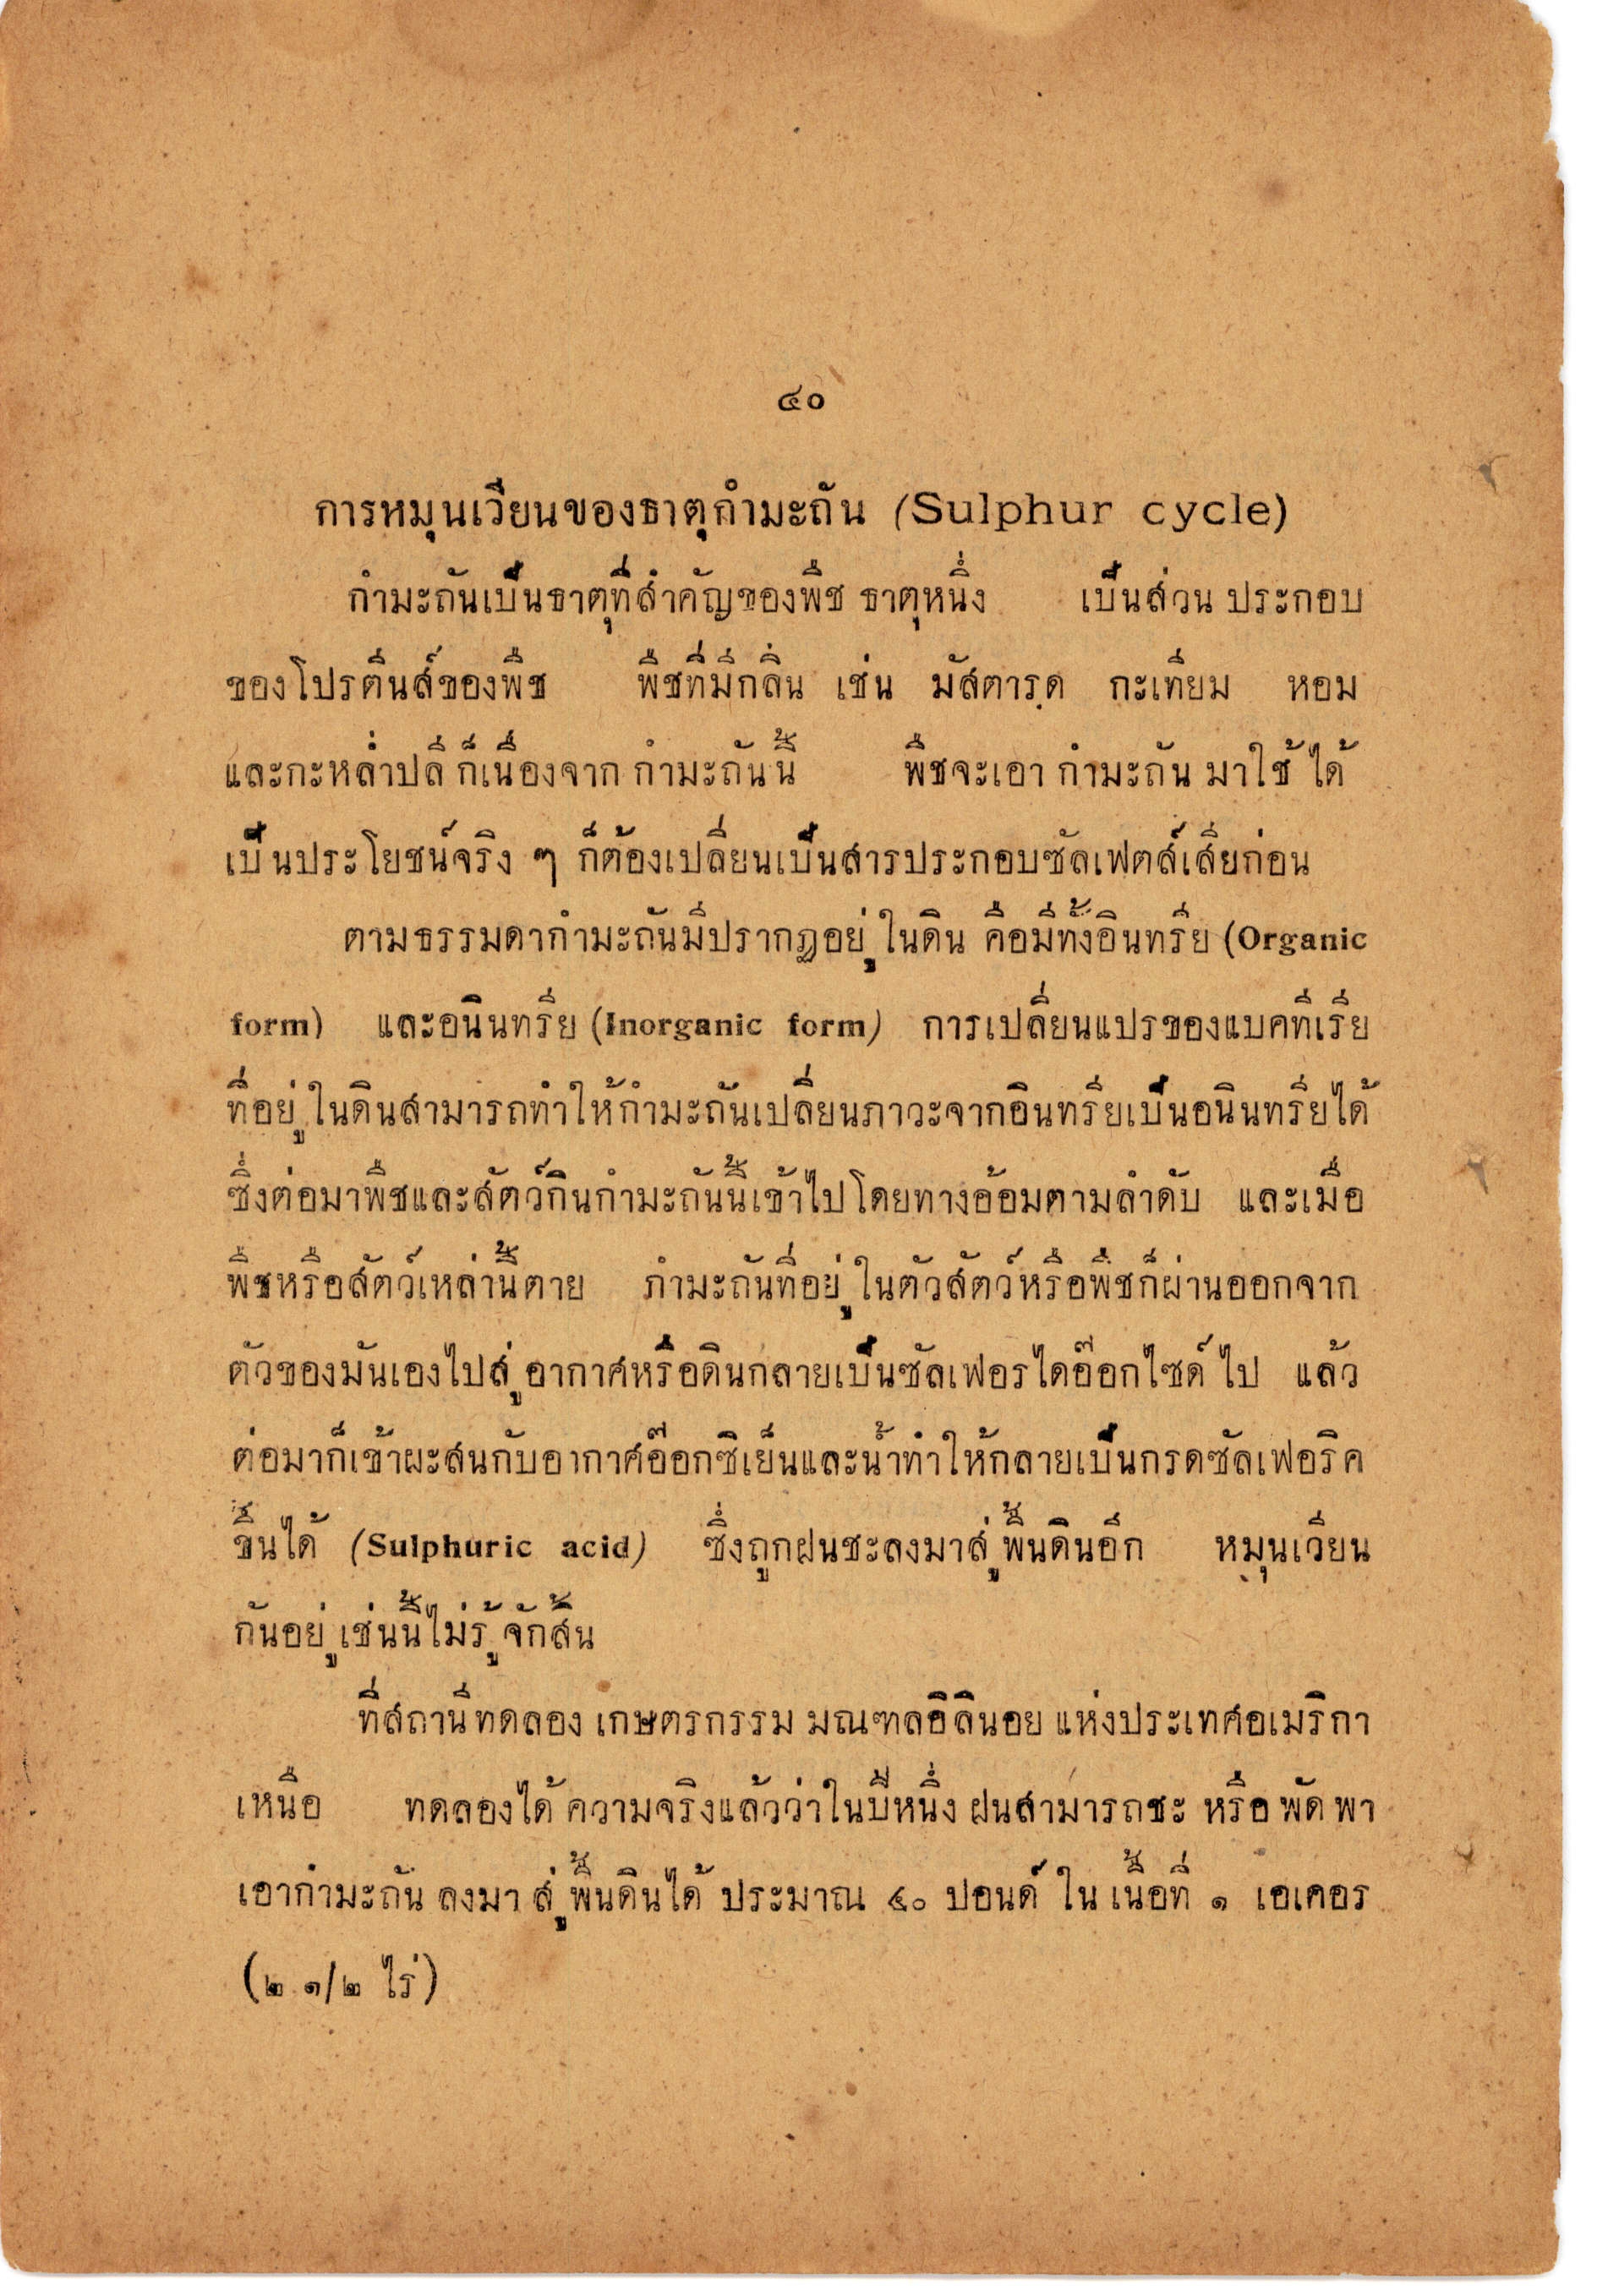 ๔๐
การหมุนเวียนของธาตุกำมะถัน (Sulphur cycle)
กำมะถันเป็นธาตุที่สำคัญของพืช ธาตุหนึ่ง เป็นส่วน ประกอบ
ของโปรตีนส์ของพืช พืชที่มีกลิ่น เช่น มัสตารฺด กะเทียม หอม
และกะหล่ำปลี ก็เนื่องจาก กำมะถันนี้ พืชจะเอา กำมะถัน มาใช้ ได้
เป็นประโยชน์จริง ๆ ก็ต้องเปลี่ยนเป็นสารประกอบซัลเฟตส์เสียก่อน
ตามธรรมดากำมะถันมีปรากฏอยู่ในดิน คือมีทั้งอินทรีย (Organic
form) และอนินทรีย (Inorganic form) การเปลี่ยนแปรของแบคทีเรีย
ที่อยู่ในดินสามารถทำให้กำมะถันเปลี่ยนภาวะจากอินทรียเป็นอนินทรียได้
ซึ่งต่อมาพืชและสัตว์กินกำมะถันนี้เข้าไปโดยทางอ้อมตามลำดับ และเมื่อ
พืชหรือสัตว์เหล่านี้ตาย กำมะถันที่อยู่ในตัวสัตว์หรือพืชก็ผ่านออกจาก
ตัวของมันเองไปสู่อากาศหรือดินกลายเป็นซัลเฟอรไดอ๊อกไซด์ ไป แล้ว
ต่อมาก็เข้าผะสนกับอากาศอ๊อกซิเย็นและน้ำทำให้กลายเป็นกรดซัลเฟอริค
ขึ้นได้ (Sulphuric acid) ซึ่งถูกฝนชะลงมาสู่พื้นดินอีก หมุนเวียน
กันอยู่เช่นนี้ไม่รู้จักสิ้น
ที่สถานีทดลอง เกษตรกรรม มณฑลอิลินอย แห่งประเทศอเมริกา
เหนือ ทดลองได้ ความจริงแล้วว่าในปีหนึ่ง ฝนสามารถชะ หรือ พัด พา
เอากำมะถัน ลงมา สู่พื้นดินได้ ประมาณ ๔๐ ปอนด์ ใน เนื้อที่ ๑ เอเคอร
(๒ ๑/๒ ไร่)